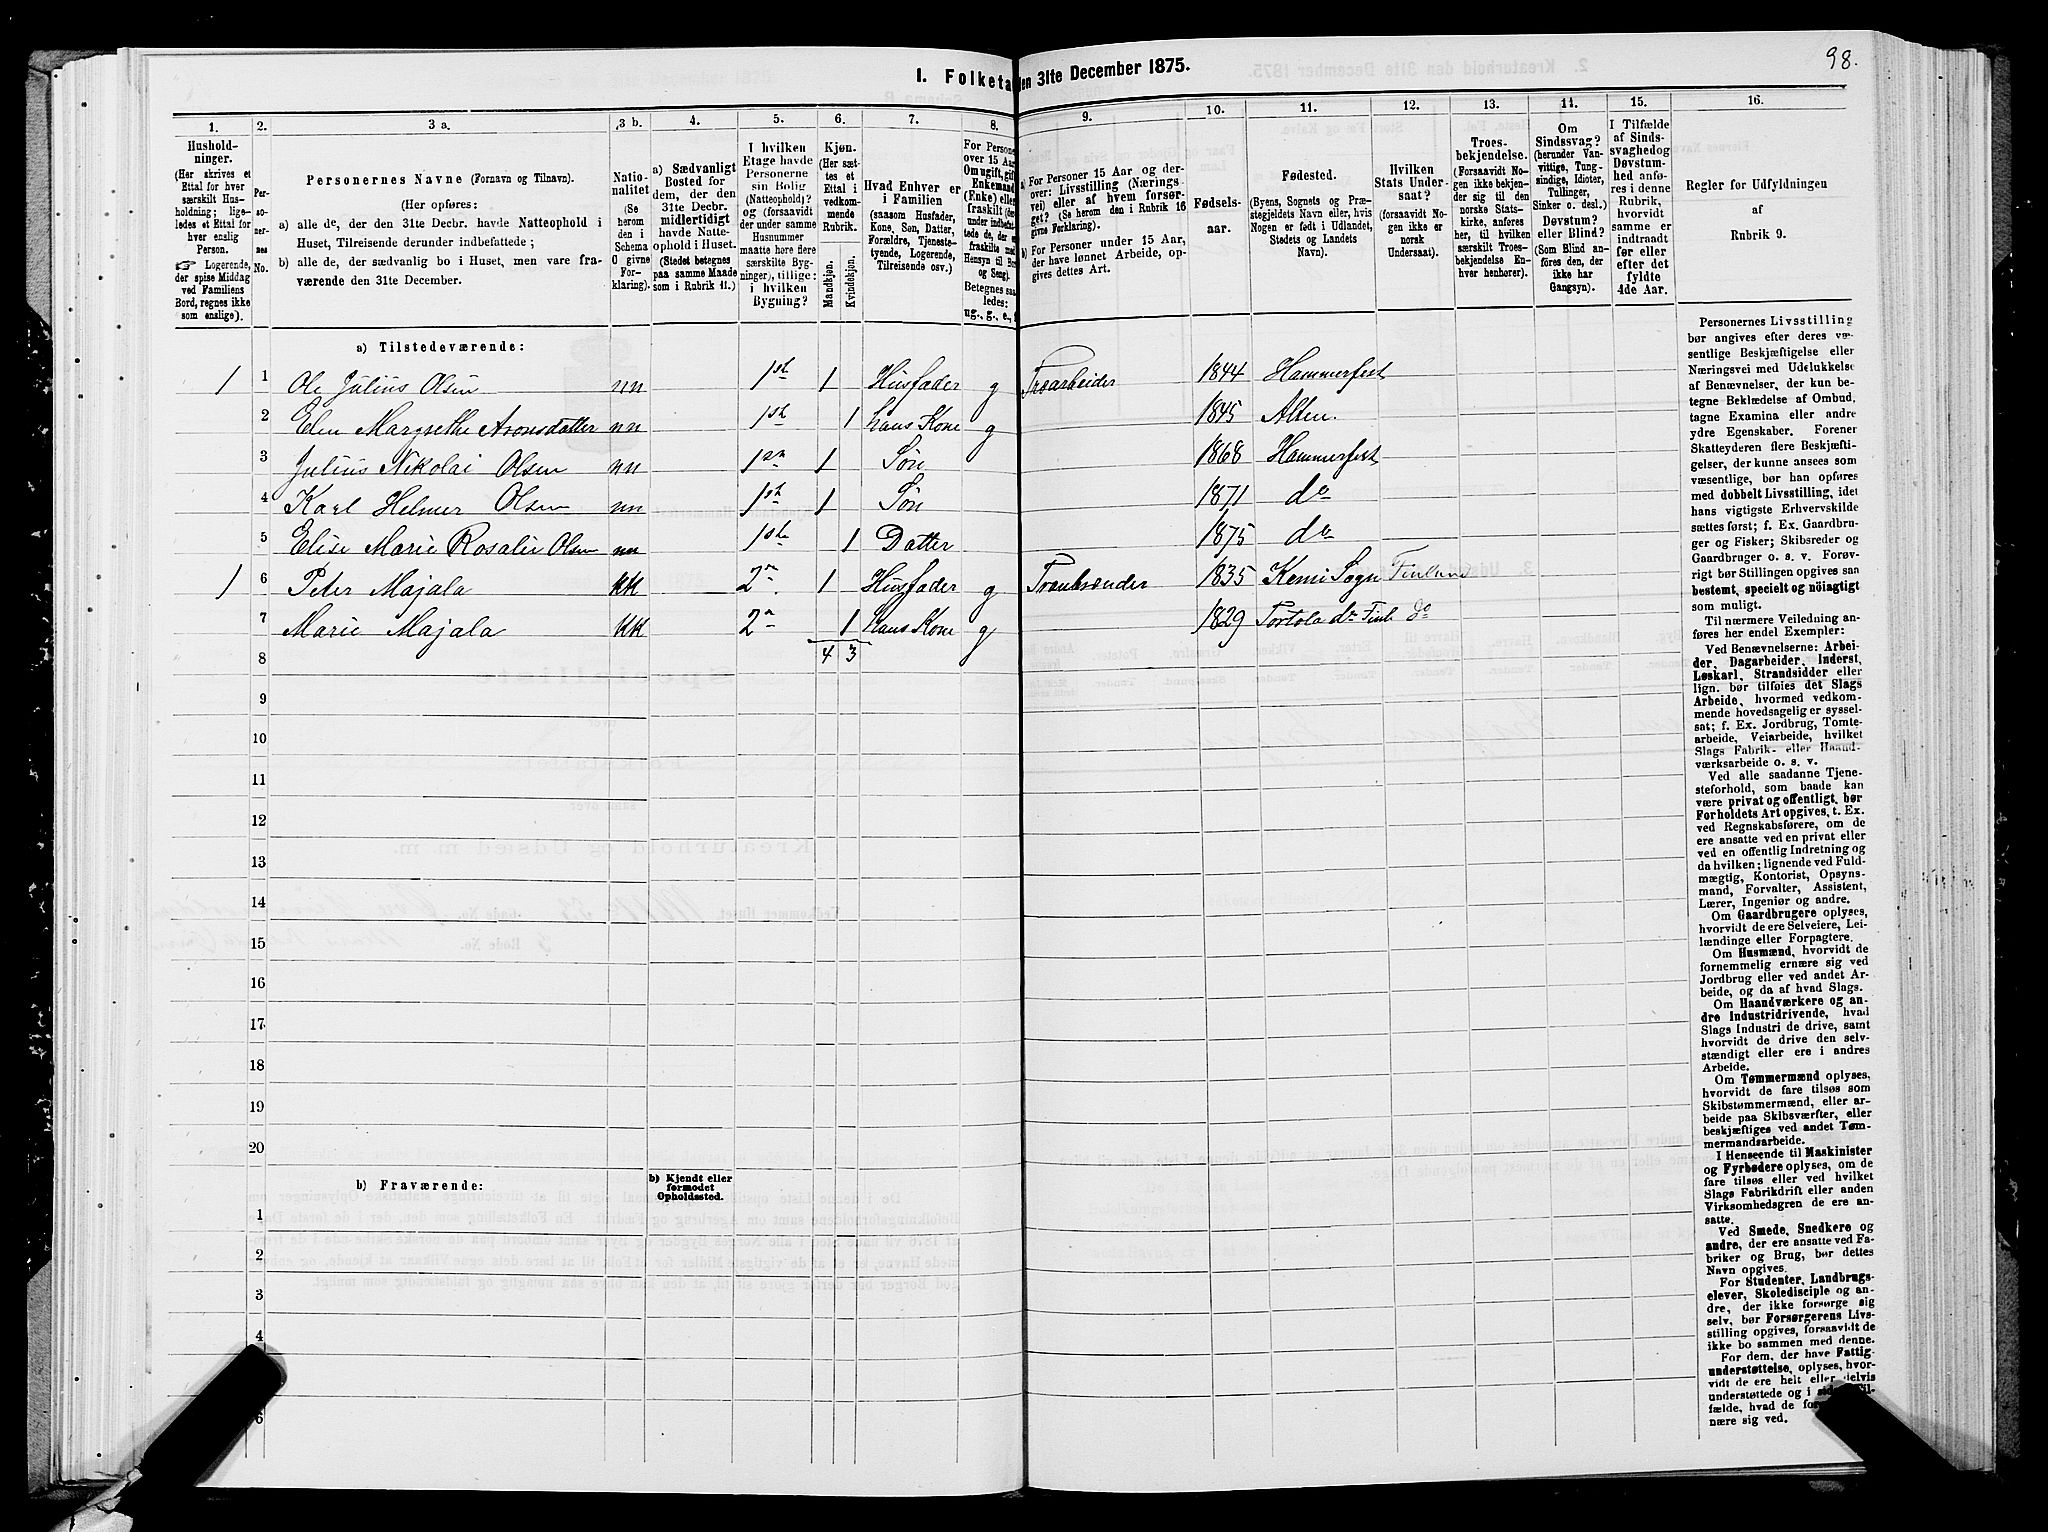 98.
I. Folketa
en 31te December 1875.
1. 2. 3 a. 3 b. 4. 5. 6. 7. 8. 9. 10. 11. 12. 13. 14. 15. 16.
Hushold-
ninger.
(Her skrives et
Ettal for hver
særskilt Hus-
holdning; lige-
ledes et Ettal for
hver enslig
Person.
☞ Logerende,
der spise Middag
ved Familiens
Bord, regnes ikke
som enslige).
Per-
so-
ner-
nes
No.
Personernes Navne (Fornavn og Tilnavn).
(Her opføres:
a) alle de, der den 31te Decbr. havde Natteophold i
Huset, Tilreisende derunder indbefattede;
b) alle de, der sædvanlig bo i Huset, men vare fra-
værende den 31te December.
Natio-
nalitet
(Se
herom
den i
Schema
O givne
For-
klaring).
a) Sædvanligt
Bosted for
dem, der den
31te Decbr.
midlertidigt
havde Natte-
ophold i Huset.
(Stedet betegnes
paa samme Maade
som i Rubrik 11.)
I hvilken
Etage havde
Personerne
sin Bolig
(Natteophold)?
og (forsaavidt
der under samme
Husnummer
maatte høre flere
særskilte Byg-
ninger), tillige:
i hvilken
Bygning?
Kjøn.
(Her sæt-
tes et
Ettal i
vedkom-
mende
Rubrik.
Mandkjøn.
Kvindekjøn.
Hvad Enhver er
i Familien
(saasom Husfader,
Kone, Søn, Datter,
Forældre, Tjeneste-
tyende, Logerende,
Tilreisende osv.)
For Persone
over 15 Aar
Om ugift, gift
Enkemand
(Enke) elle
fraskilt (de
under indbefa
tede de, de
fraskilte me
Hensyn til Bo
og Seng).
Betegnes saa
ledes:
ug., g., e., f
a) For Personer 15 Aar og der-
over: Livsstilling (Nærings
vei) eller af hvem forsør-
get? (Se herom den i Rubrik 16
givne Førklaring).
b) For Personer under 15 Aar,
der have lønnet Arbeide, op-
gives dettes Art.
Fødsels-
aar.
Fødested.
(Byens, Sognets og Præ-
stegjeldets Navn eller, hvis
Nogen er født i Udlandet,
Stedets og Landets
Navn).
Hvilken
Stats Under-
saat?
(forsaavidt No-
gen ikke er
norsk
Undersaat).
Troes-
bekjendelse.
(Forsaavidt No-
gen ikke bekjen-
der sig til den
norske Stats-
kirke, anføres
her, til hvilken
særskilt Troes-
bekjendelse En-
hver henhører).
Om
Sindssvag?
(herunder Van-
vittige, Tung-
sindige, Idioter,
Tullinger,
Sinker o. desl.)
Døvstum?
eller Blind?
(Som Blind an-
føres den, der
ikke har
Gangsyn).
I Tilfælde
af Sinds-
svaghed og
Døvstum-
hed anfø-
res i denne
Rubrik,
hvorvidt
samme er
indtraadt
før eller
efter det
fyldte
4de Aar.
Regler for Udfyldningen
af
Rubrik 9.
a) Tilstedeværende:
1 1 Ole Julius Olsen nn 1st 1 Husfader g Træarbeider 1844 Hammerfest
2 Elen Margrethe Aronsdatter nn 1st 1 hans Kone g 1845 Alten.
3 Julius Nikolai Olsen nn 1 1 Søn 1868 Hammerfest
4 Karl Helmer Olsen nn 1st 1 Søn 1871 do
5 Elise Marie Rosalie Olsen nn 1ste 1 Datter 1875 do
1 6 Peter Majala KK 2n. 1 Husfader g Tranbrænder 1835 Kemi Sogn Finland
7 Marie Majala KK 2n 1 hans Kone g 1829 Tortola do Finl do
8 4 3
9
10
11
12
13
14
15
16
17
18
19
20
b) Fraværende:
b) Kjendt eller
formodet
Opholdssted.
1
2
3
4
6
Personernes Livsstilling
bør angives efter deres væ-
sentlige Beskjæftigelse eller
Næringsvei med Udelukkelse
af Benævnelser, der kun be-
tegne Beklædelse af Ombud,
tagne Examina eller andre
ydre Egenskaber. Forener
Skatteyderen flere Beskjæfti-
gelser, der kunne ansees som
væsentlige, bør han opføres
med dobbelt Livsstilling, idet
hans vigtigste Erhvervskilde
sættes først; f. Ex. Gaardbru-
ger og Fisker; Skibsreder og
Gaardbruger o. s. v. Forøv-
rigt bør Stillingen opgives saa
bestemt, specielt og nöiagtigt
som muligt.
Til nærmere Veiledning an-
føres her endel Exempler:
Ved Benævnelserne: Arbei-
der, Dagarbeider, Inderst,
Løskarl, Strandsidder eller
lign. bør tilføies det Slags
Arbeide, hvormed vedkom-
mende hovedsagelig er syssel-
sat; f. Ex. Jordbrug, Tomte-
arbeide, Veiarbeide, hvilket
Slags Fabrik- eller Haand-
værksarbeide o. s. v.
Ved alle saadanne Tjene-
steforhold, som baade kan
være privat og offentligt, bør
Forholdets Art opgives, t. Ex.
ved Regnskabsførere, om de
ere ansatte ved en privat eller
ved en offentlig Indretning og
da hvilken; lignende ved Fuld-
mægtig, Kontorist, Opsyns-
mand, Forvalter, Assistent,
Lærer, Ingeniør og andre.
Om Gaardbrugere oplyses,
hvorvidt de ere Selveiere, Lei-
lændinge eller Forpagtere.
Om Husmænd, hvorvidt de
fornemmelig ernære sig ved
Jordbrug eller ved andet Ar-
beide, og da af hvad Slags.
Om Haandværkere og an-
dre Industridrivende, hvad
Slags Industri de drive, samt
hvorvidt de drive den selv-
stændigt eller ere i andres
Arbeide.
Om Tømmermænd oplyses,
hvorvidt de fare tilsøs som
Skibstømmermænd, eller ar-
beide paa Skibsværfter, eller
beskjæftiges ved andet Tøm-
mermandsarbeide.
I Henseende til Maskinister
og Fyrbødere oplyses, om de
fare tilsøs eller ved hvilket
Slags Fabrikdrift eller anden
Virksomhedsgren de ere an-
satte.
Ved Smede, Snedkere og
andre, der ere ansatte ved Fa-
briker og Brug, bør dettes
Navn opgives.
For Studenter, Landbrugs-
elever, Skoledisciple og an-
dre, der ikke forsørge sig
selv, bør Forsørgerens Livs-
stilling opgives, forsaavidt de
ikke bo sammen med denne.
For dem, der have Fattig-
understøttelse, oplyses, hvor-
vidt de ere helt eller delvis
understøttede og i
fælde, hvad de
nære sig ved.